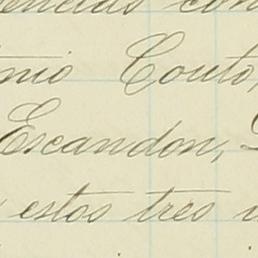 encias con
nio Couto,
Escandon,
estos tres